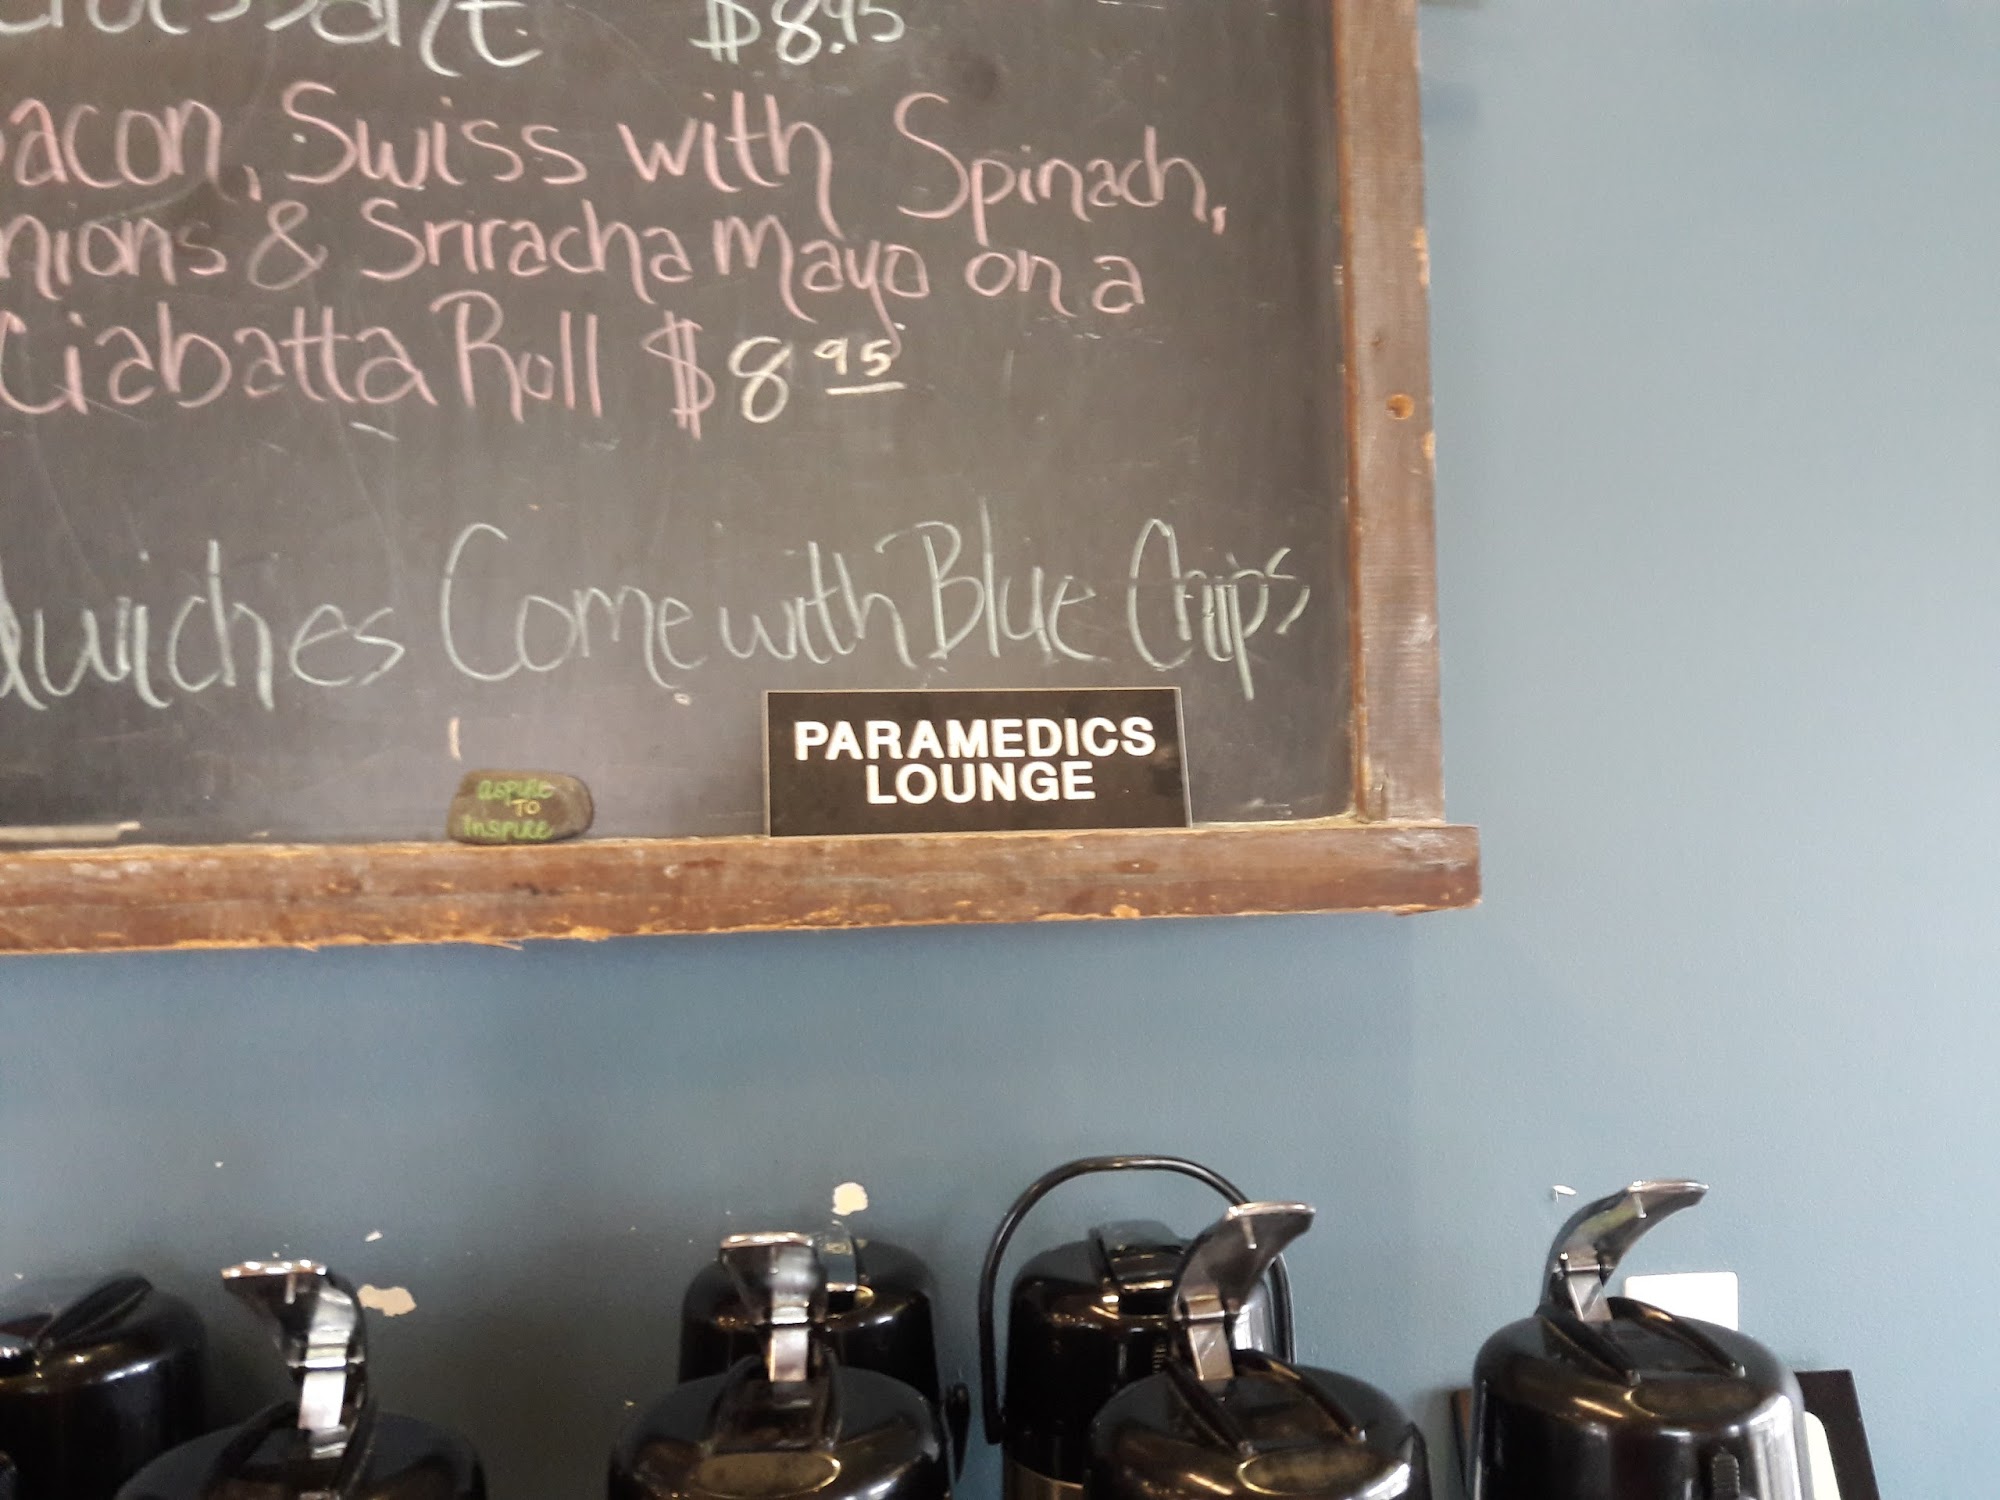 $8.95
acon, Swiss with Spinach,
nions & Sriracha Mayo on a
Ciabatta Roll $8 95
dwiches Come with Blue Chips
PARAMEDICS
LOUNGE
aspire
TO
Inspire